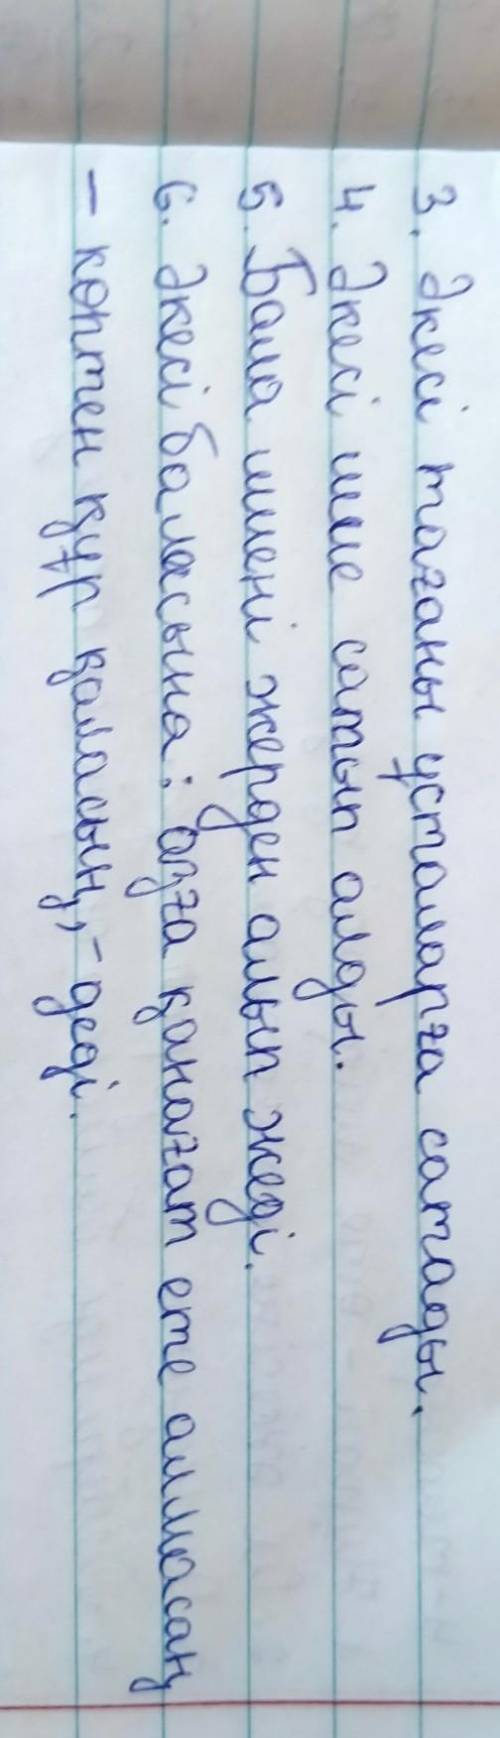 3. Әкесі тағаны ұсталарға сатады.
4. Әкесі шие сатып алды.
5. Бала шиені жерден алып жеді.
6. Әкесі баласына: азға қанағат ете алмасаң
– көптен құр қаласың,- деді.